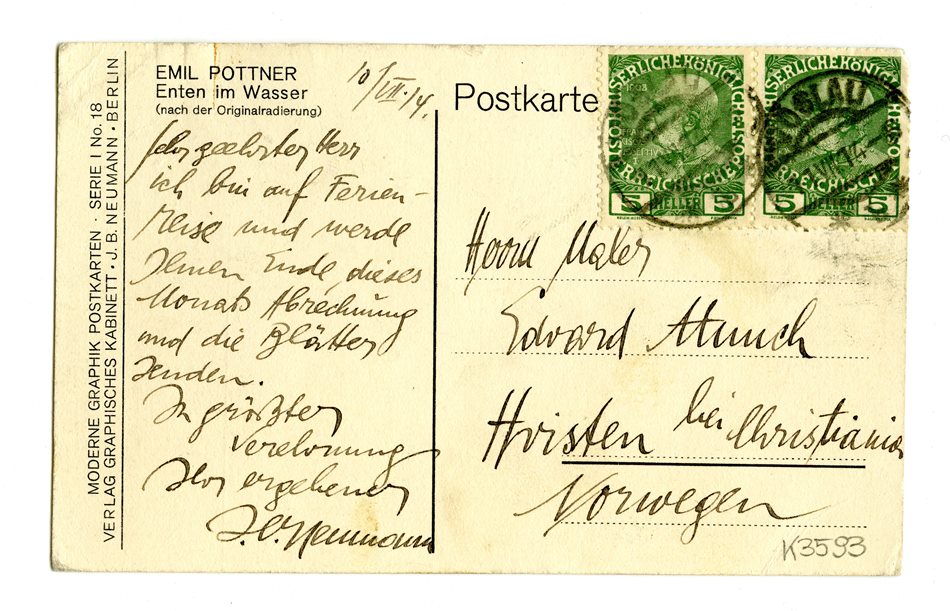 MODERNE GRAPHIK POSTKARTEN · SERIE I No. 18
VERLAG GRAPHISCHES KABINETT · J. B. NEUMANN · BERLIN
EMIL POTTNER
Enten im Wasser
(nach der Originalradierung)
10/VII. 14.
Sehr geehrter Herr
ich bin auf Ferien-
reise und werde
Ihnen Ende dieses
Monats Abrechnung
und die Blätter
senden.
In größter
Verehrung
Ihr ergebener
J. B. Neumann
Postkarte
5 HELLER 5
5 HELLER 5
Herrn Maler
Edvard Munch
Hvisten bei Christiania
Norwegen
K3593